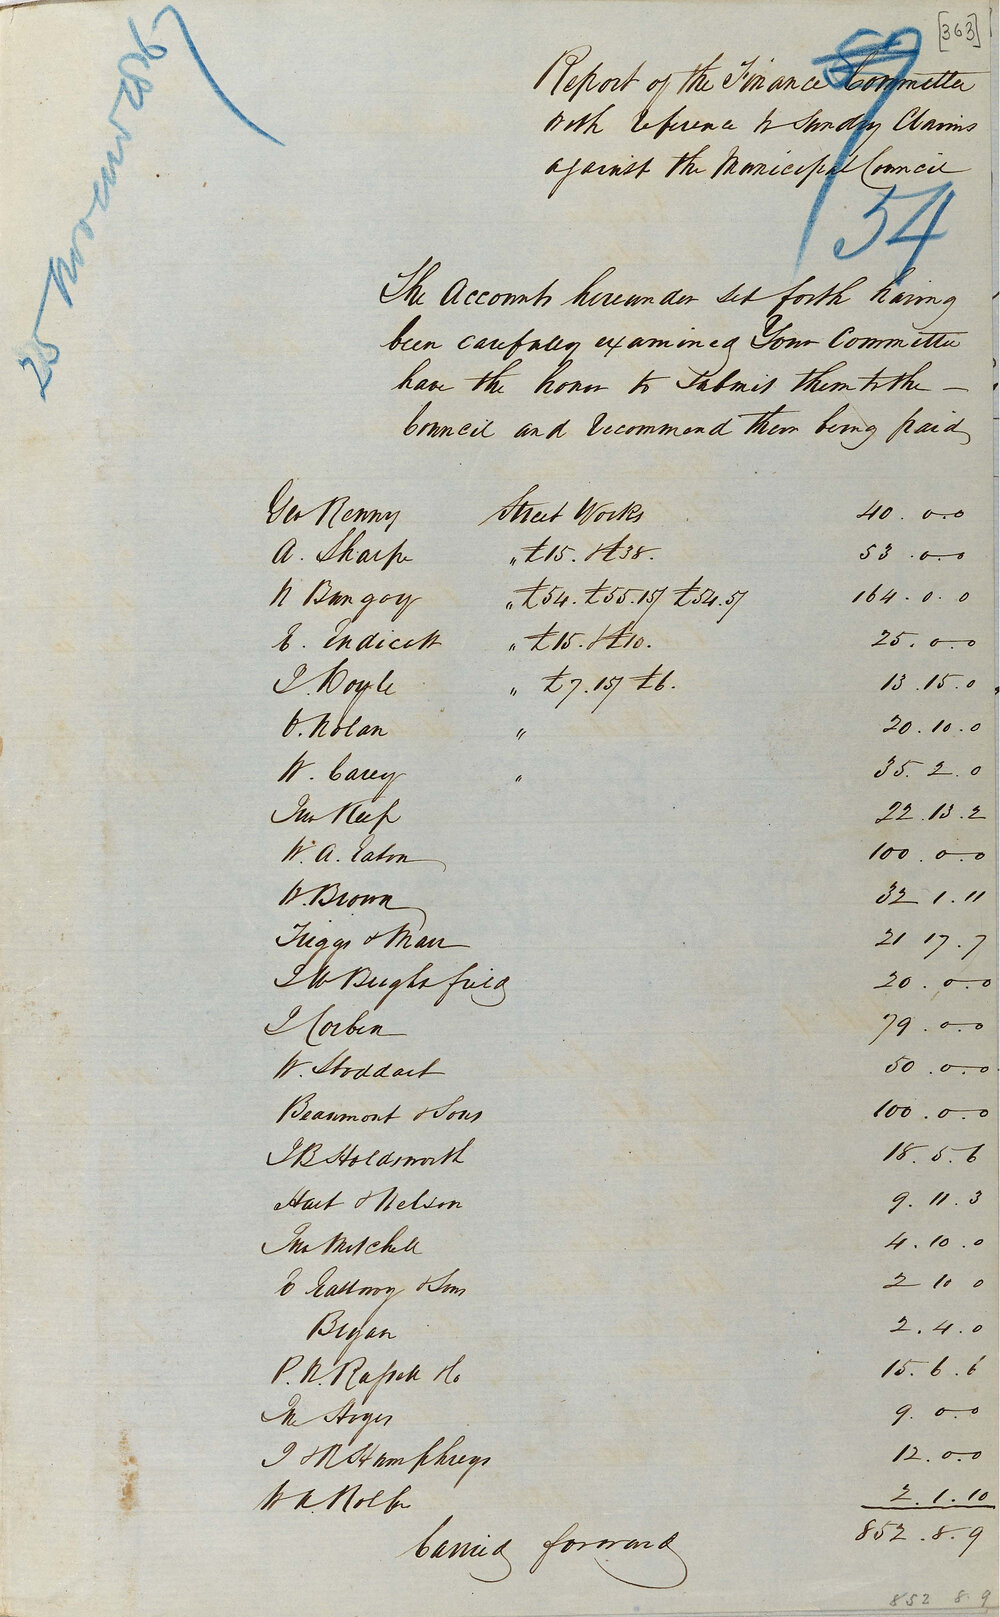 [363]
25 November 1856
57
Report of the Finance Committee
with reference to Sundry Claims
against the Municipal Council
54
The Accounts hereunder set forth having
been carefully examined Your Committee
have the honor to submit them to the —
Council and recommend them being paid
Geo Renny Street Works 40.0.0
A. Sharpe " £15. & £38. 53.0.0
N Bungay " £54. £55.15/ £54.5/ 164.0.0
E. Endicott " £15. & £10. 25.0.0
J. Doyle " £7.15/ £6. 13.15.0
D. Nolan " 20.10.0
W. Carey " 35.2.0
Jno Keep 22.13.2
W. A. Eaton 100.0.0
W. Brown 32 1.11
Triggs & Marr 21 17.7
J W Beightsfield 20.0.0
J Corben 79.0.0
W. Stoddart 50.0.0
Beaumont & Sons 100.0.0
J B Holdsworth 18.5.6
Hart & Nelson 9.11.3
Jno Mitchell 4.10.0
E Eastway & Sons 2 10 0
Bryan 2.4.0
P. N. Russell & Co 15.6.6
9.0.0
J & R Humphreys 12.0.0
W H Rolfe 2.1.10
852.8.9
Carried forward
852 8 9